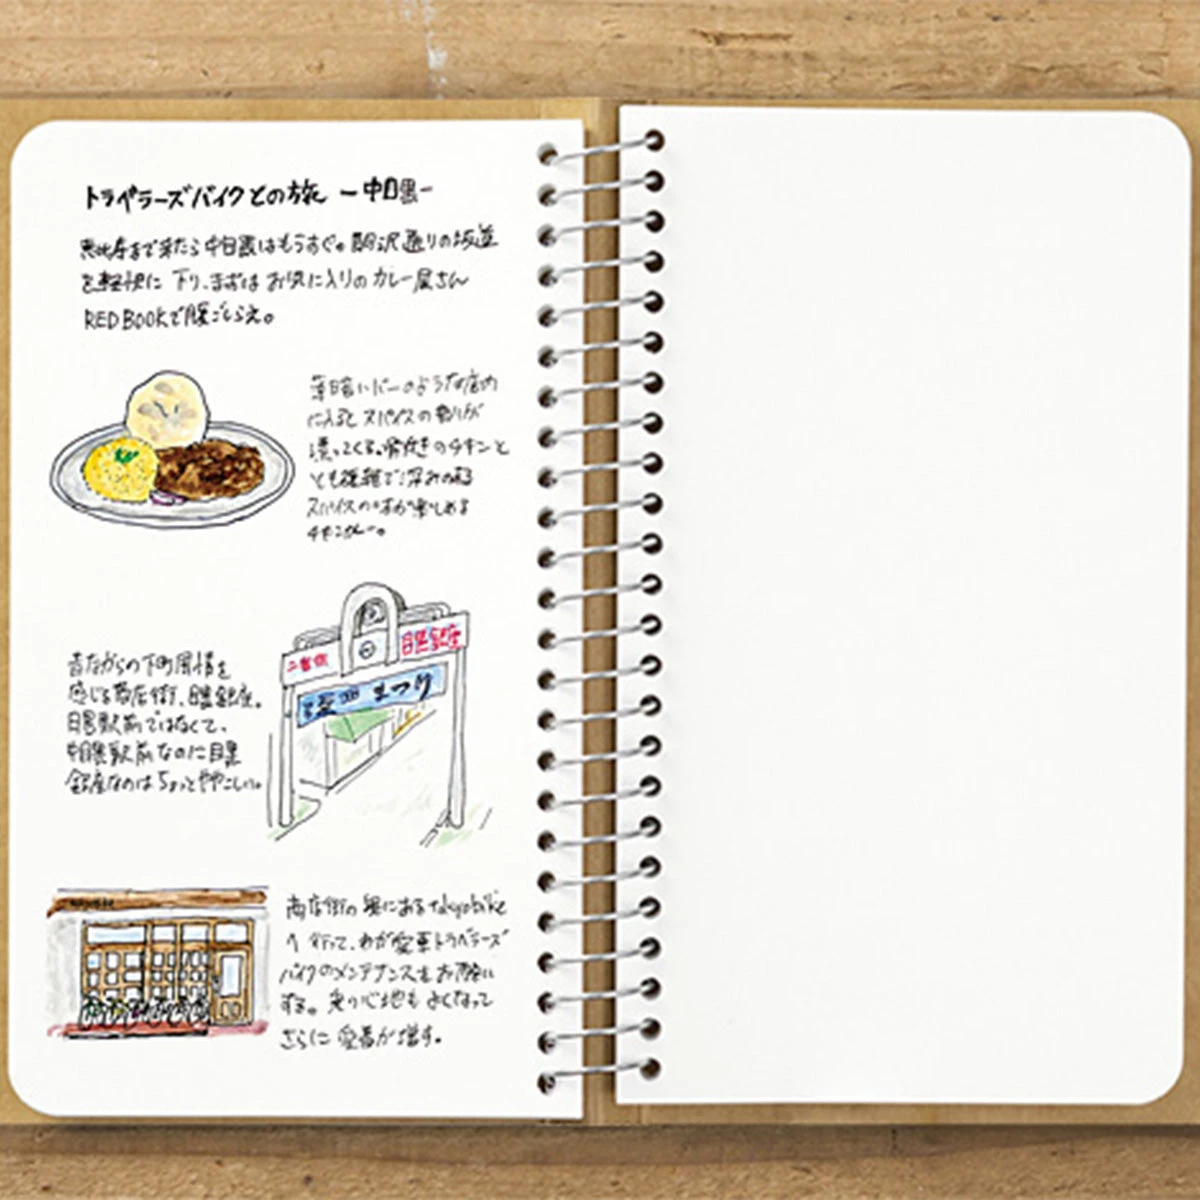 トラベラーズバイクとの旅 ー中目黒ー
恵比寿まで来たら中目黒はもうすぐ。駒沢通りの坂道
を軽快に下り、まずはお気に入りのカレー屋さん
RED BOOKで腹ごしらえ。
薄暗いバーのような店内
に入るとスパイスの香りが
漂ってくる。骨付きのチキンと
とも複雑で深みのある
スパイスの味が楽しめる
チキンカレー。
二番街
目黒銀座
まつり
昔ながらの下町風情を
感じる商店街、目黒銀座。
目黒駅前ではなくて、
中目黒駅前なのに目黒
銀座なのはちょっとややこしい。
商店街の奥にあるtokyobike
へ行って、わが愛車トラベラーズ
バイクのメンテナンスをお願い
する。乗り心地もよくなって
さらに愛着が増す。